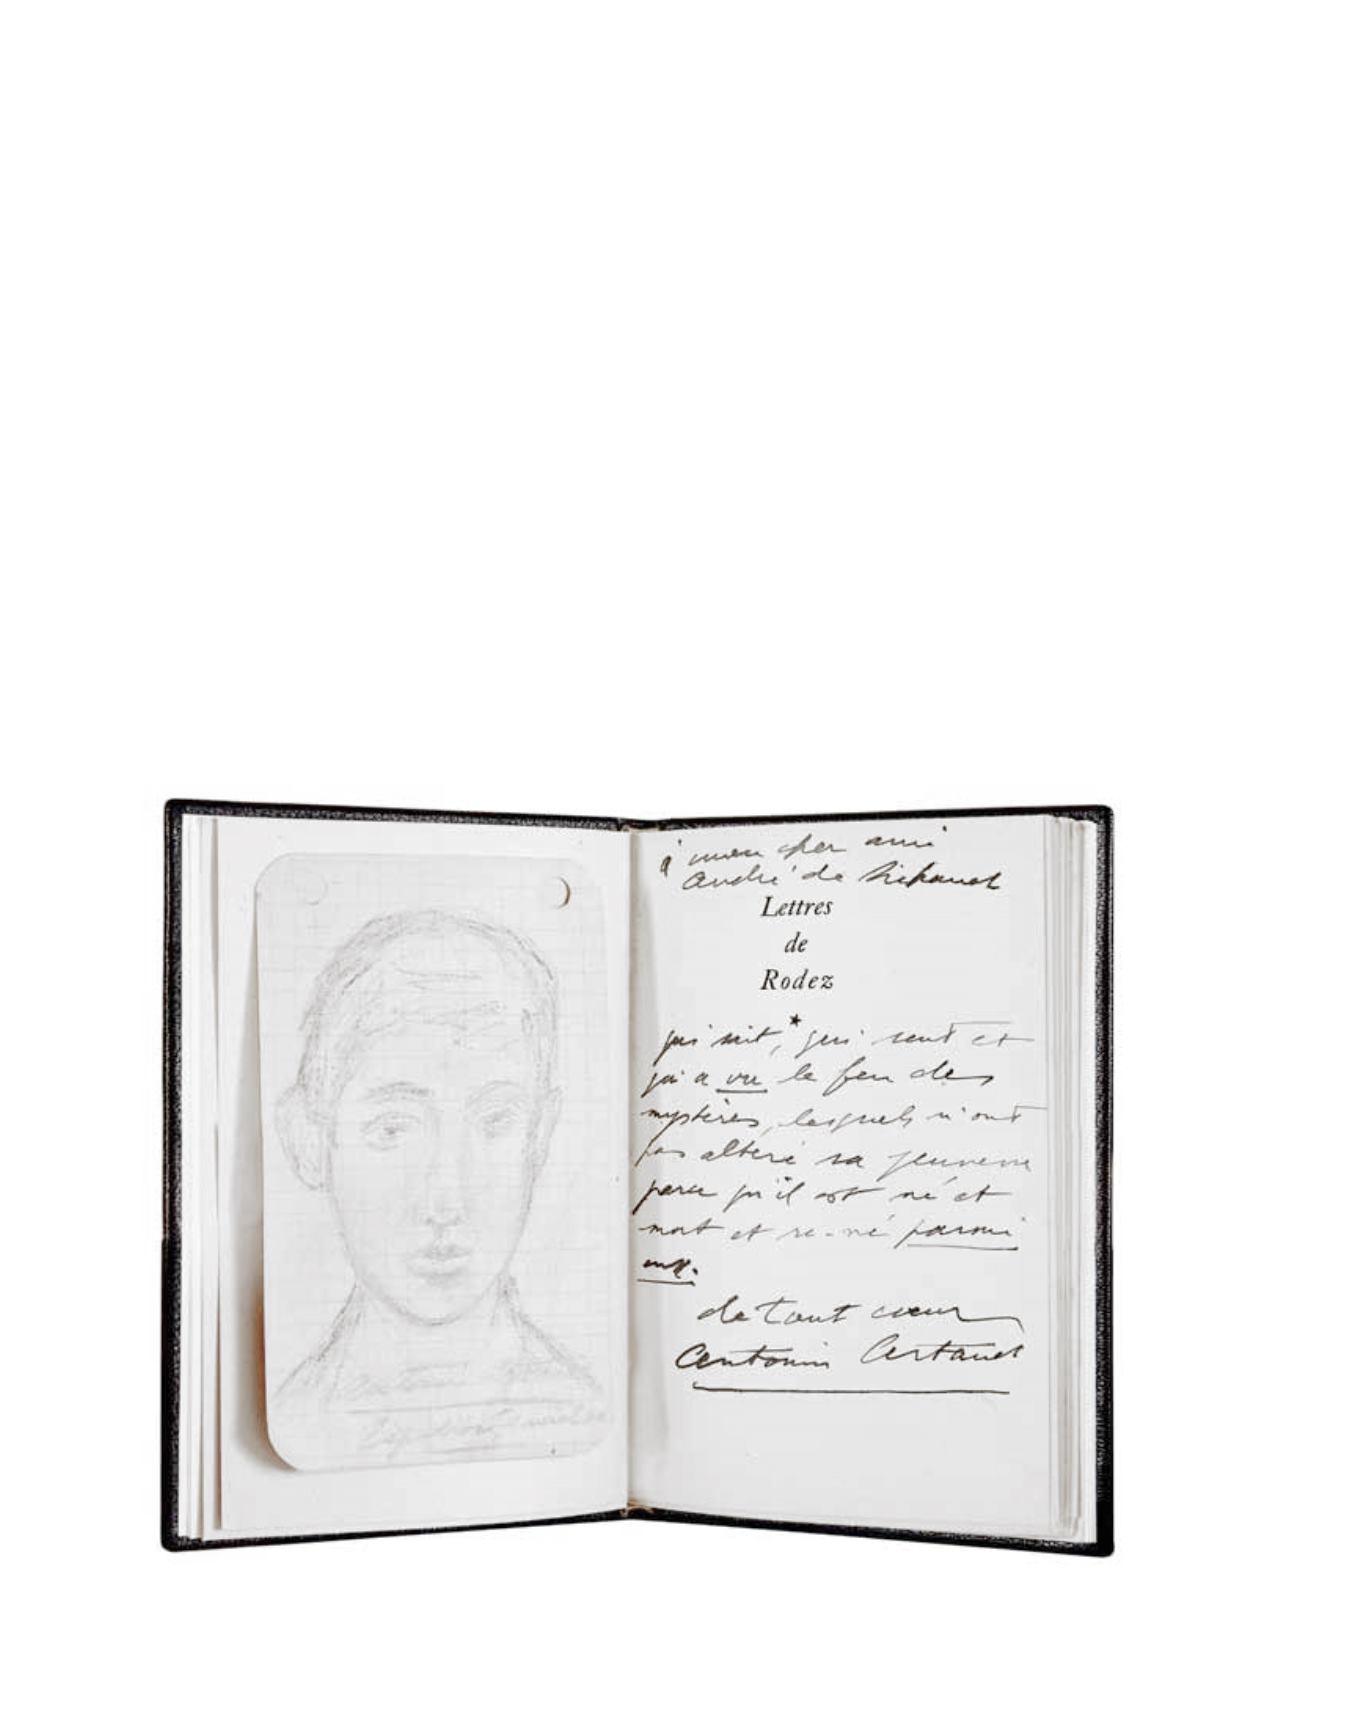 à mon cher ami
André de
Lettres
de
Rodez
*
qui sait, qui sent et
qui a vu le feu des
mystères, lesquels n'ont
pas altéré sa jeunesse
parce qu'il est né et
mort et re-né parmi
eux.
de tout cœur
Antonin Artaud